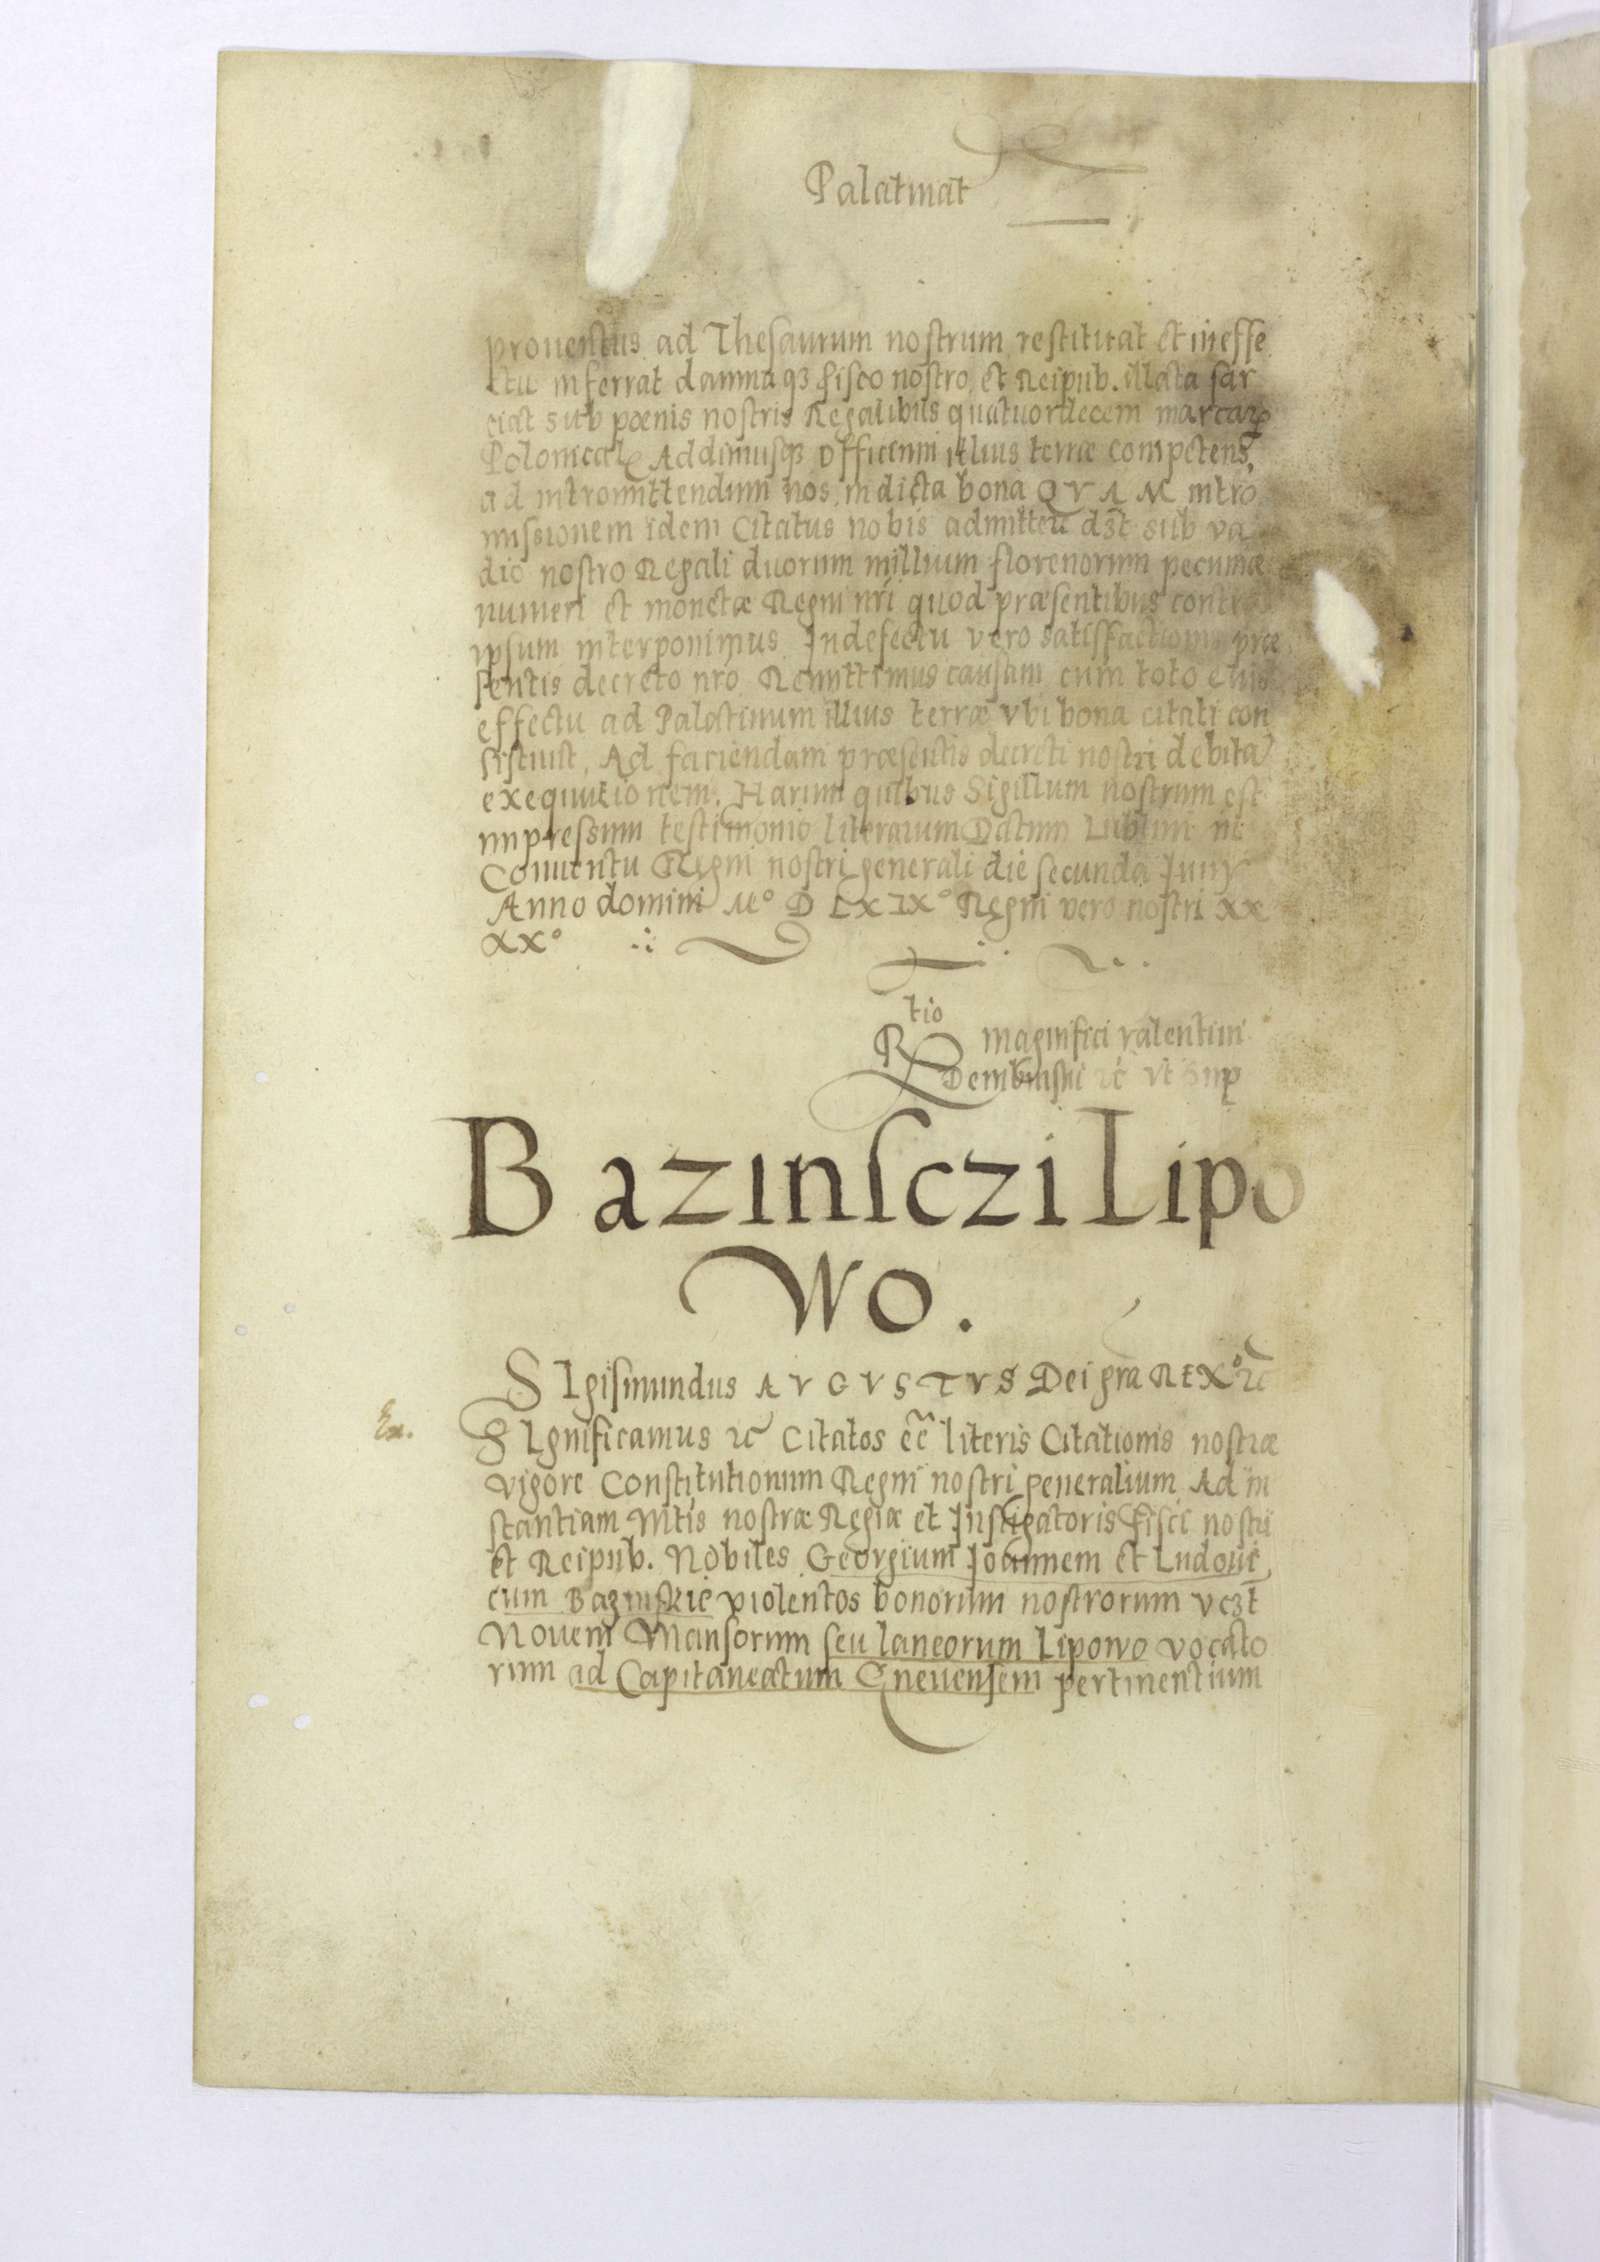 Palatinat
prouentus ad Thesaurum nostrum restituat et in effe
ctu inferrat damnaq3 fisco nostro et Reipub. illata sar
ciat sub pœnis nostris Regalibus quatuordecem marcarꝝ
Polonical Addimusq3 Officium illius terræ competens,
ad intromittendum nos in dicta bona QVAM intro
missionem idem Citatus nobis admittere d3t sub va
dio nostro Regali duorum millium florenorum pecuniæ
numeri et monetæ Regni nri quod præsentibus contra
ipsum interponimus. In defectu vero satisfactionis præ
sentis decreto nro Remittimus causam cum toto eius
effectu ad Palatinum illius terræ vbi bona citati con
sistunt, Ad faciendam præsentis decreti nostri debita
exequutionem. Harum quibus Sigillum nostrum est
impressum testimonio literarum Datum Lublini in
Conuentu Regni nostri generali die secunda Iunij
Anno domini Mº D LXIXº Regni vero nostri xx
xxº
tio
R magnifici valentini
Dembinskii ꝛc vt sup
Bazinsczi Lipo
wo.
SIgismundus AVGVSTVS Dei gra REXº ꝛc
Ex.
SIgnificamus ꝛc Citatos ee literis Citationis nostræ
vigore Constitutionum Regni nostri generalium Ad in
stantiam Mtis nostræ Regiæ et Instigatoris fisci nostri
et Reipub. Nobiles Georgium Ioannem et Ludoui
cum Bazinskie violentos bonorum nostrorum vc3t
Nouem Mansorum seu laneorum Lipowo vocato
rum ad Capitaneatum Gneuensem pertinentium